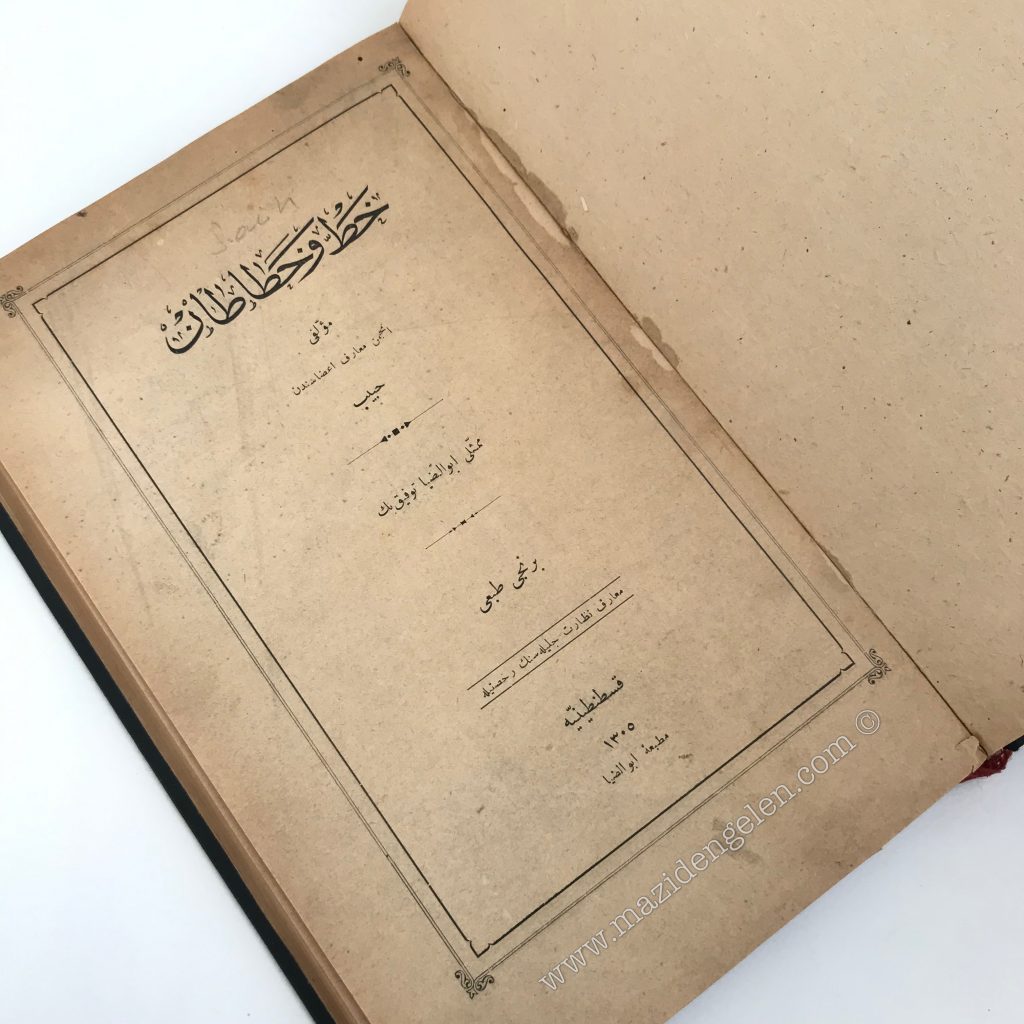 خط و خطاطان
مؤلفى
انجمن معارف اعضاسندن
حبيب
ممثلى ابوالضيا توفيق بك
برنجى طبعى
معارف نظارت جليله سنك رخصتيله
قسطنطينيّه
١٣٠٥
مطبعۀ ابوالضيا
www.mazidengelen.com ©